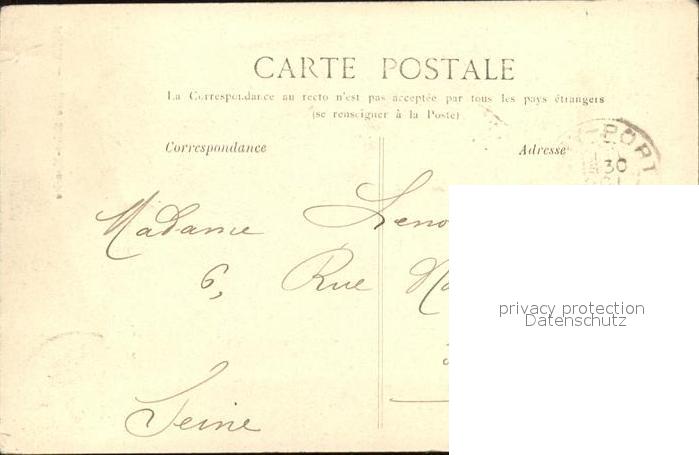 CARTE POSTALE
La Correspondance au recto n'est pas acceptée par tous les pays étrangers
(se renseigner à la Poste)
Correspondance
Adresse
PORT
30
Madame Leno
6, Rue
privacy protection
Datenschutz
Seine